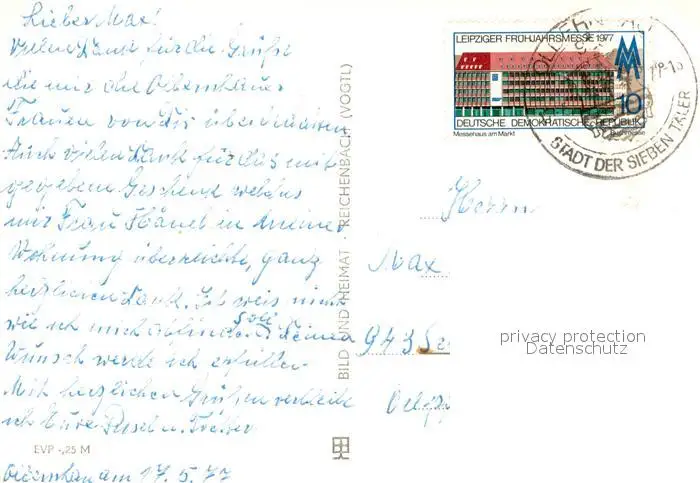 Lieber Max!
Vielen Dank für die Grüße
die mir die Olbernhauer
Frauen von Dir überbrachten
Auch vielen Dank für das mit
gegebene Geschenk welches
mir Frau Hänel in meiner
Wohnung überreichte, ganz
herzlichen Dank. Ich weis nicht
wie ich mich soll Deinen
Wunsch werde ich erfüllen
Mit herzlichen Grüßen verbleibe
ich Eure
EVP -,25 M
Olbernhau am 17.5.77
BILD UND HEIMAT · REICHENBACH (VOGTL)
LEIPZIGER FRÜHJAHRSMESSE 1977
10
DEUTSCHE DEMOKRATISCHE REPUBLIK
Messehaus am Markt
STADT DER SIEBEN TÄLER
Herrn
Max
943
privacy protection
Datenschutz